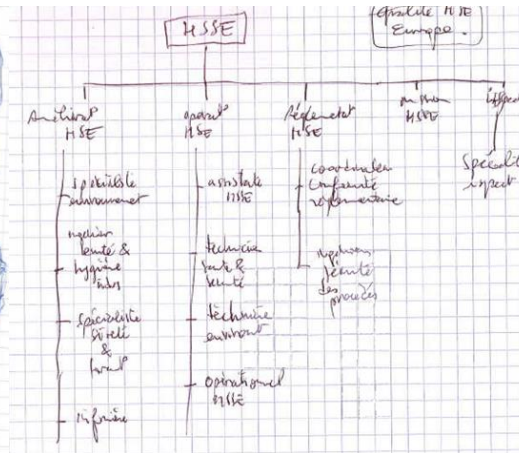 HSSE
Qualité HSE
Europe.
HSE
operat
HSE
Réglementat
HSE
HSSE
inspect
spécialiste
environnement
santé &
hygiène
spécialiste
sûreté
&
infirmière
assistante
HSSE
technicien
santé &
sécurité
technicien
environt
opérationnel
HSSE
coordinateur
conformité
réglementaire
sécurité
des
procédés
Spécialit
inspect